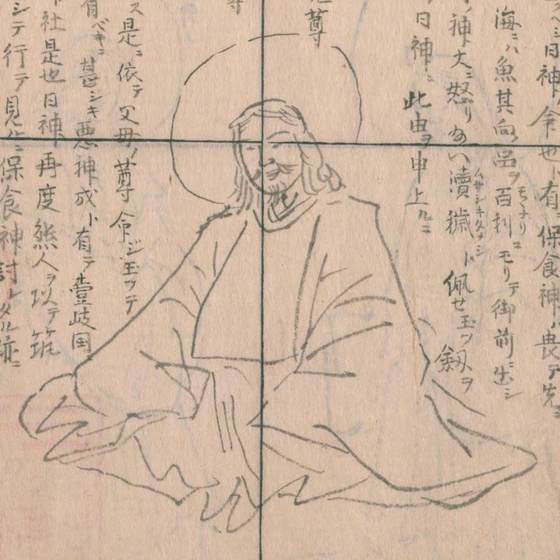 ニ日神ノ命也ト有保食神畏テ先
海ニハ魚其向出ヲ百机ニモリテ御前ニ出シ
神大ニ怒リ給ハ瀆穢ト佩せ玉ツ釼ヲ
日神ニ此由ヲ申上ルニ
尊
ス是ニ依テ父母ノ尊命ジ玉ッテ
有ベキニ甚シキ悪神成ト有テ壹岐国
神社是也日神再度熊人ヲ以テ
シテ行テ見ルニ保食神討レタル跡ニ